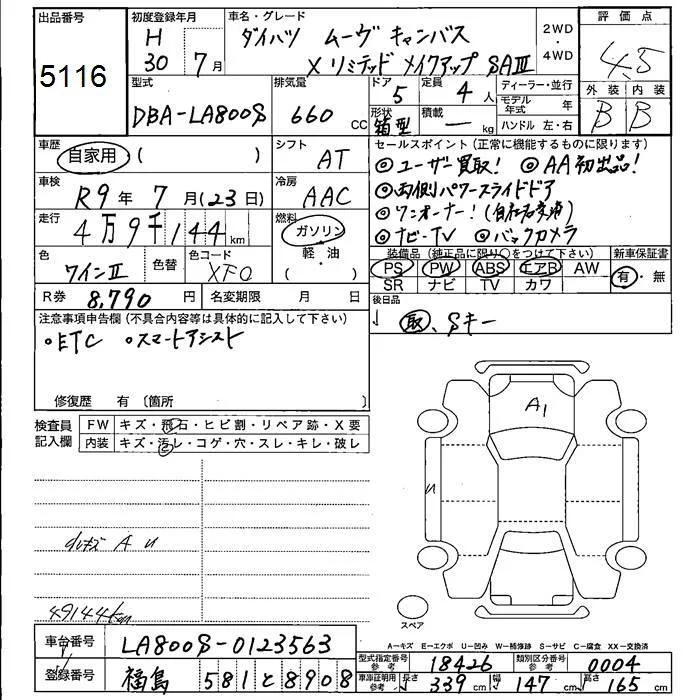 出品番号
5116
初度登録年月
H
30 7月
車名・グレード
ダイハツ ムーヴ キャンバス
X リミテッド メイクアップ SAⅢ
2WD
・
4WD
評価点
4.5
外装 内装
B B
型式
DBA-LA800S
排気量
660 CC
ドア
5
定員
4人
形状
箱型
積載
― kg
ディーラー・並行
モデル年式 年
ハンドル 左・右
車歴
自家用 ( )
シフト
AT
車検
R9年 7月(23日)
冷房
AAC
走行
4万9千144km
燃料
ガソリン
・
軽・油
( )
色
ワインⅡ
色替
色コード
XFO
R券 8,790 円
名変期限 月 日
セールスポイント(正常に機能するものに限ります)
◎ユーザー買取! ◎AA初出品!
◎両側パワースライドドア
◎ワンオーナー!(自社名変済)
◎ナビ・TV ◎バックカメラ
装備品(純正品に限り○をつけて下さい)
PS PW ABS エアB AW
SR ナビ TV カワ
新車保証書
有・無
後日品
取、Sキー
注意事項申告欄(不具合内容等は具体的に記入して下さい)
。ETC 。スマートアシスト
修復歴 有〔箇所 〕
検査員記入欄
FW キズ・飛石・ヒビ割・リペア跡・X要
内装 キズ・汚レ・コゲ・穴・スレ・キレ・破レ
A1
U
小キズ A U
49144km
スペア
A-キズ E-エクボ U-凹み W-補修跡 S-サビ C-腐食 XX-交換済
車台番号 LA800S-0123563
登録番号 福島 581 と 8908
型式指定番号 参考 18426
類別区分番号 参考 0004
車庫証明用 参考
長さ 339cm 幅 147cm 高さ 165cm